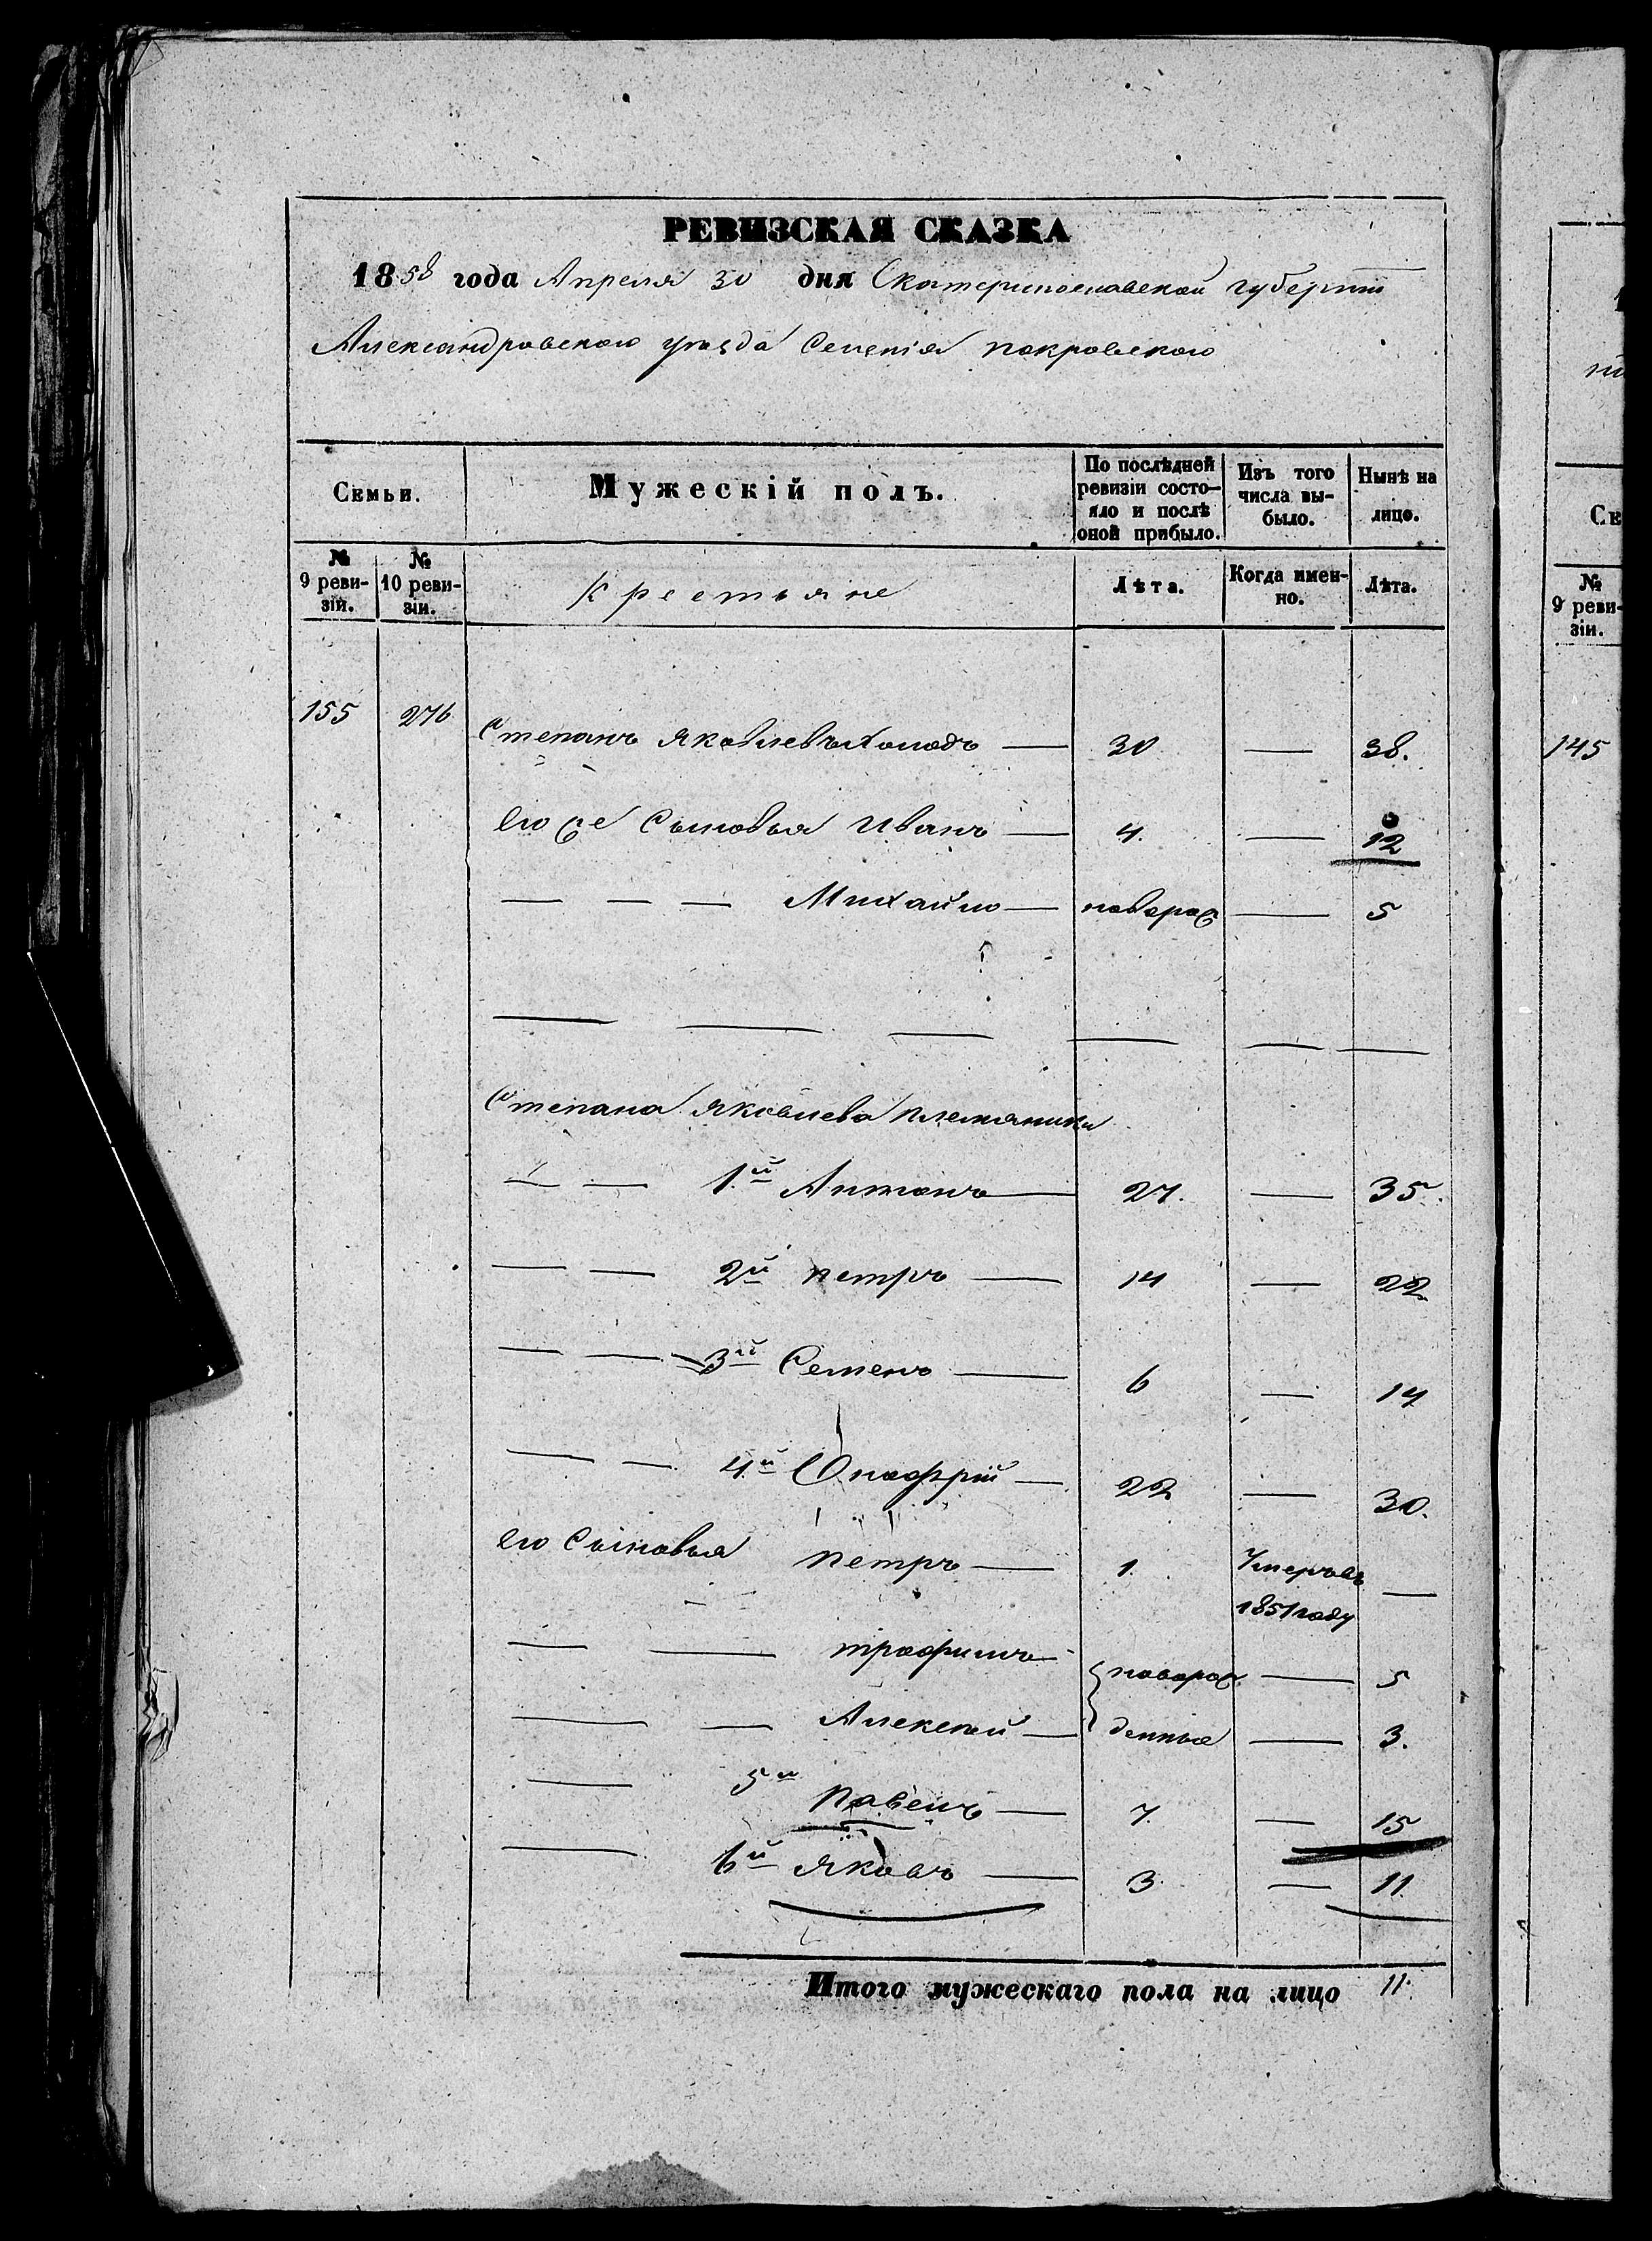 РЕВИЗСКАЯ СКАЗКА
1858 года Апреля 30 дня Екатеринославской губернии
Александровского уѣзда Селенія покровского
Семьи.
Мужескій полъ.
По послѣдней ревизіи состояло и послѣ оной прибыло.
Изъ того числа выбыло.
Нынѣ на лицо.
№ 9 ревизій.
№ 10 ревизіи.
Крестьяне
Лѣта.
Когда именно.
Лѣта.
155 276 Степанъ Яковлевъ Холодъ — 30 — 38.
Его же Сыновья Иванъ — 4. — 12
— — — Михайло — новорож — 5
Степана Яковлева племяники
— — 1й Антонъ — 27. — 35.
— — 2й петръ — 14 — 22
— — 3й Семенъ — 6 — 14
— — 4й Онофрій — 22 — 30.
Его Сыновья петръ — 1. Умеръ въ 1851 году —
— — трофимъ — новорож — 5
— — Алексей — денные — 3.
— 5й павелъ — 7. — 15
— 6й Яковъ — 3. — 11.
Итого мужескаго пола на лицо 11.
Се
№
9 реви-
зіи.
145